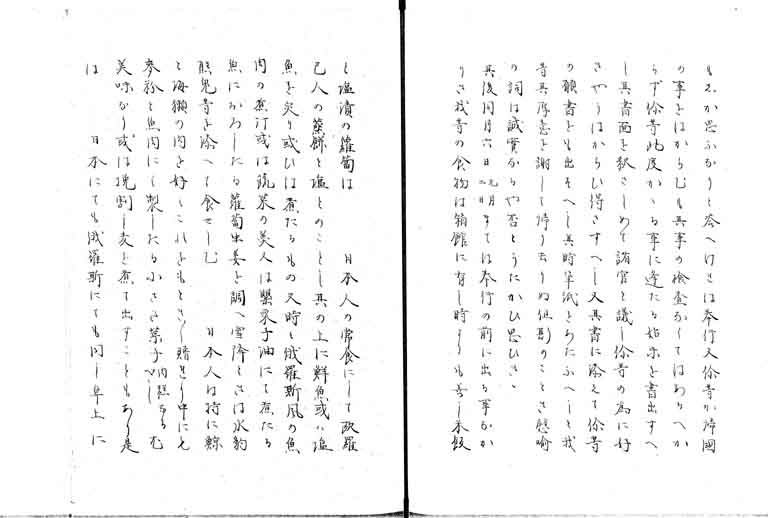 もムか思ふかりと答へけれは奉行又你等か帰國
の事をはからむも其事の検査なくてはあるへか
らず你等此度かゝる事に逢たる始末を書出すへ
し其書面を訳さしめて諸官と議し你等の為に好
きやうはからひ得さすへし又其書に添えて你等
の願書をも出そへし其時筆紙をあたふへしと我
等其厚意を謝して帰り去りぬ但斯のことき懇喻
の詞は誠實なりや否とうたかひ思ひき
其後同月六日 まては奉行の前に出る事なか
りき我等の食物は箱館に在し時よりも善し米飯
と塩漬の蘿蔔は 日本人の常食にして欧羅
巴人の蒸餅と塩とのことし其の上に鮮魚或ハ塩
魚を炙り或ひは煮たるもの又時々俄羅斯風の魚
肉の煮汁或は蔬菜の羹人は罌粟子油にて煮たる
魚におろしたる蘿蔔生姜を調へ雪降ときは水豹
熊兎等を添へて食せしむ 日本人は特に鯨
と海獺の肉を好みこれをもときし贈ゆ中にも
麥粉と魚肉にて製したる小さき菓子 むし
美味なり或は挽割し麦を煮て出すこともあり是
は 日本にても俄羅斯にても同し卓上に